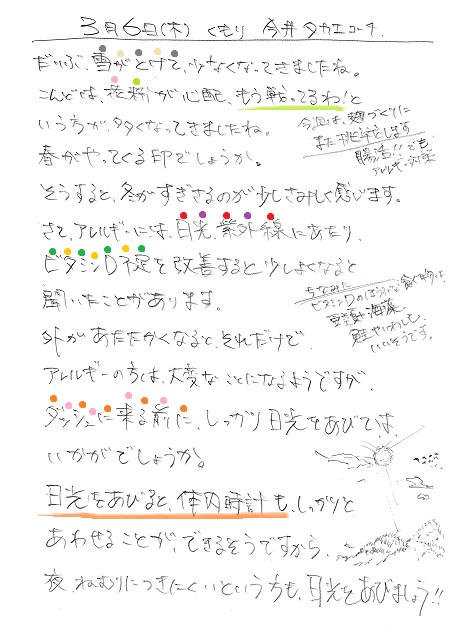 3月6日(木) くもり 今井タカエコーチ.
だいぶ、雪がとけて、少なくなってきましたね。
こんどは、花粉が心配、もう戦ってるわ!と
いう方が多くなってきましたね。
今週は、麹づくりに
また挑戦します
腸活!!でも
アレルギー対策
春がやってくる印でしょうか。
そうすると、冬がすぎさるのが少しさみしく感じます。
さて、アレルギーには、日光、紫外線にあたり、
ビタミンD不足を改善すると少しよくなると
聞いたことがあります。
ちなみに
ビタミンDのほうふな食べ物は
海藻、
鮭やいわしも
いいそうです。
外があたたかくなると、それだけで
アレルギーの方は、大変なことになるようですが、
ダッシュに来る前に、しっかり日光をあびては
いかがでしょうか。
日光をあびると、体内時計も、しっかりと
あわせることが、できるそうですから、
夜、ねむりにつきにくいという方も、日光をあびましょう!!